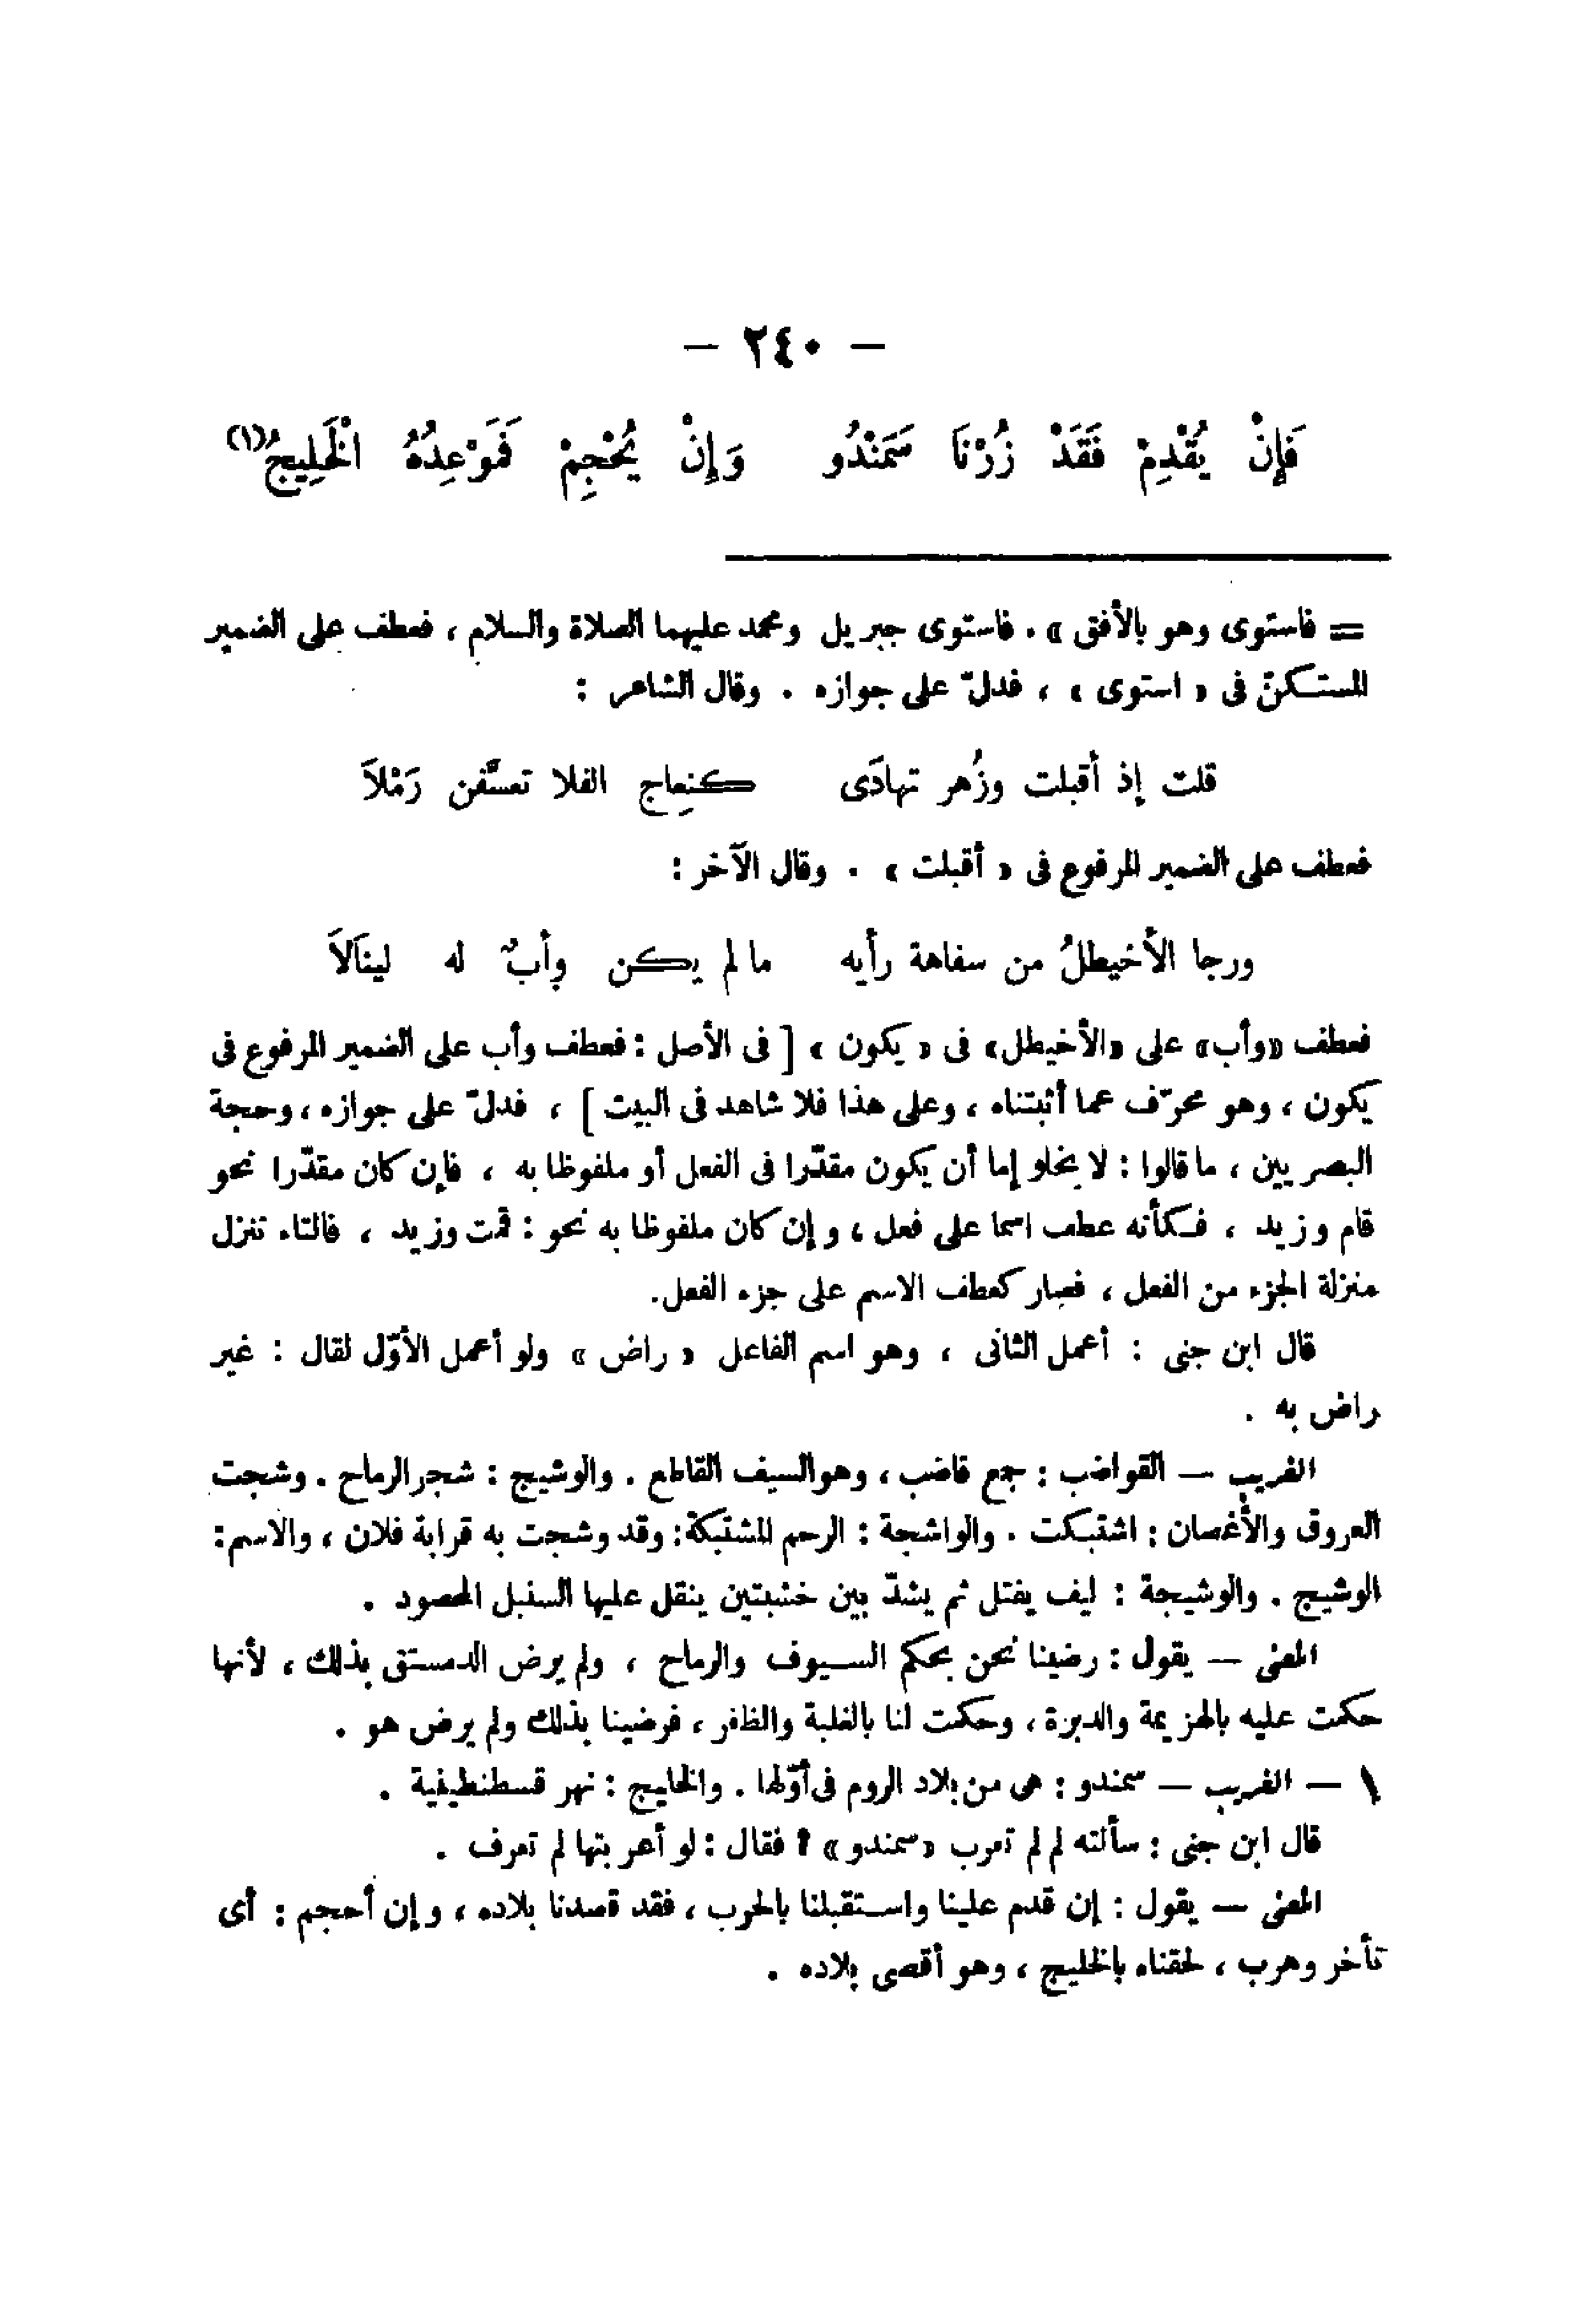 — ٢٤٠ —
فَإِنْ يُقْدِمْ فَقَدْ زُرْنَا سَمَنْدُو وَإِنْ يُحْجِمْ فَمَوْعِدُهُ الْخَلِيجُ(١)
= فاستوى وهو بالأفق » . فاستوى جبريل ومحمد عليهما الصلاة والسلام ، فعطف على الضمير
المستكنّ فى « استوى » ، فدلّ على جوازه . وقال الشاعر :
قلت إذ أقبلت وزُهر تهادَى كنِعاج الفلا تعسَّفن رَمْلاَ
فعطف على الضمير المرفوع فى « أقبلت » . وقال الآخر :
ورجا الأخيطلُ من سفاهة رأيه ما لم يكن وأبٌ له لينَالاَ
فعطف «وأب» على «الأخيطل» فى « يكون » [ فى الأصل : فعطف وأب على الضمير المرفوع فى
يكون ، وهو محرّف عما أثبتناه ، وعلى هذا فلا شاهد فى البيت ] ، فدلّ على جوازه ، وحجة
البصريين ، ما قالوا : لا يخلو إما أن يكون مقدّرا فى الفعل أو ملفوظا به ، فإن كان مقدّرا نحو
قام وزيد ، فكأنه عطف اسما على فعل ، وإن كان ملفوظا به نحو : قمت وزيد ، فالتاء تنزل
منزلة الجزء من الفعل ، فصار كعطف الاسم على جزء الفعل.
قال ابن جنى : أعمل الثانى ، وهو اسم الفاعل « راض » ولو أعمل الأوّل لقال : غير
راض به .
الغريب — القواضب : جمع قاضب ، وهو السيف القاطع . والوشيج : شجر الرماح . وشجت
العروق والأغصان : اشتبكت . والواشجة : الرحم المشتبكة: وقد وشجت به قرابة فلان ، والاسم :
الوشيج . والوشيجة : ليف يفتل ثم يشدّ بين خشبتين ينقل عليها السنبل المحصود .
المعنى — يقول : رضينا نحن بحكم السيوف والرماح ، ولم يرض الدمستق بذلك ، لأنها
حكمت عليه بالهزيمة والدبرة ، وحكمت لنا بالغلبة والظفر ، فرضينا بذلك ولم يرض هو .
١ — الغريب — سمندو : هى من بلاد الروم فى أوّلها . والخليج : نهر قسطنطينية .
قال ابن جنى : سألته لم لم تعرب «سمندو» ؟ فقال : لو أعربتها لم تعرف .
المعنى — يقول : إن قدم علينا واستقبلنا بالحرب ، فقد قصدنا بلاده ، وإن أحجم : أى
تأخر وهرب ، لحقناه بالخليج ، وهو أقصى بلاده .